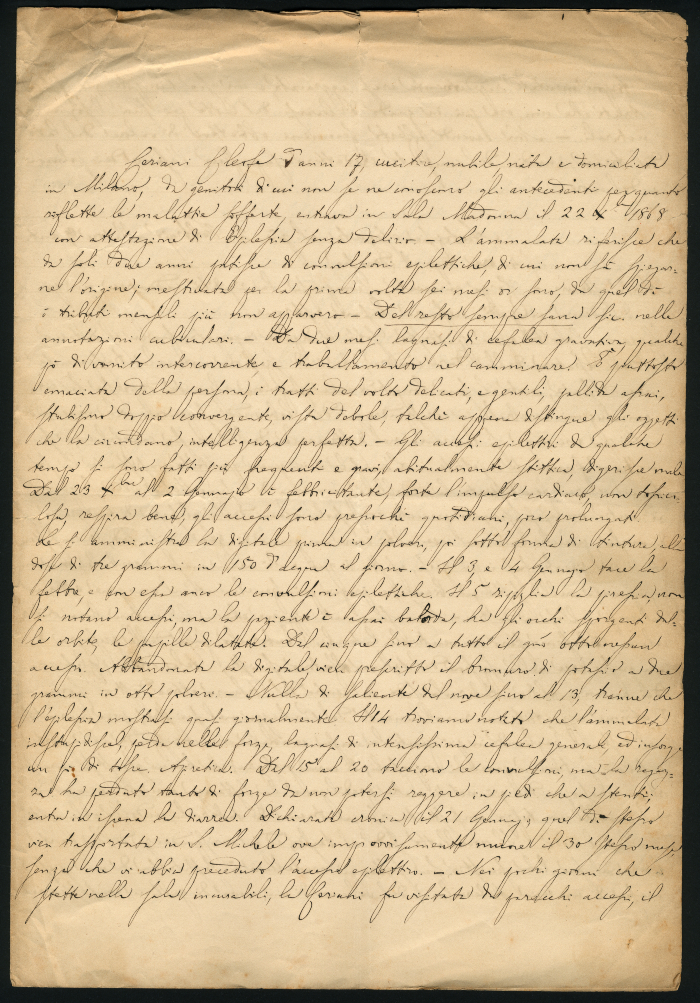 Ceriani Cleofe d'anni 17, cucitrice, nubile nata e domiciliata
in Milano, da genitori di cui non se ne conoscono gli antecedenti per quanto
riflette le malattie sofferte, entrava in Sala Madonna il 22 Xbre 1868
con attestazione di Epilessia senza delirio. — L'ammalata riferisce che
da soli due anni patisce di convulsioni epilettiche, di cui non sa spiegar-
ne l'origine; mestruata per la prima volta sei mesi or sono, da quel dì
i tributi mensili più non apparvero — Del resto sempre sana sic. nelle
annotazioni cubiculari. — Da due mesi lagnasi di cefalea gravativa, qualche
pò di vomito intercorrente e traballamento nel camminare. È piuttosto
emaciata della persona, i tratti del volto delicati, e gentili, pallida assai,
strabismo doppio convergente, vista debole, talchè appena distingue gli oggetti
che la circondano, intelligenza perfetta. — Gli accessi epilettici da qualche
tempo si sono fatti più frequenti e gravi, abitualmente stittica, digerisce male
Dal 23 Xbre al 2 Gennajo è febbricitante, forte l'impulso cardiaco, non tosico-
losa, respira bene, gli accessi sono pressochè quotidiani, poco prolungati
Le si amministra la digitale prima in polvere, poi sotto forma di tintura, alla
dose di tre grammi in 150 d'acqua al giorno. — Il 3, e 4 Gennajo tace la
febbre, e con essa anco le convulsioni epilettiche. Il 5 ripiglia la piressia, non
si notano accessi, ma la paziente è assai balorda, ha gli occhi sporgenti dal-
le orbite, le pupille dilatate. Dal cinque sino a tutto il otto nessun
accesso. Abbandonata la digitale vien prescritto il bromuro di potassio a due
grammi in otto polveri. — Nulla di saliente dal nove sino al 13, tranne che
l'epilessia mostrasi quasi giornalmente. Il 14 troviamo notato che l'ammalata
instupidisce, perde nelle forze, lagnasi di intensissima cefalea generale, ed insorge
un pò di tosse. Apiretica. Dal 15 al 20 tacciono le convulsioni, ma la ragaz-
za ha perduto tanto di forze da non potersi reggere in piedi che a stento;
entra in iscena la diarrea. Dichiarata cronica il 21 Gennajo, quel dì stesso
vien trasportata in S. Michele ove improvvisamente muore il 30 stesso mese
senza che vi abbia preceduto l'accesso epilettico. — Nei pochi giorni che
stette nella sala incurabili, la Ceriani fu visitata da parecchi accessi, il